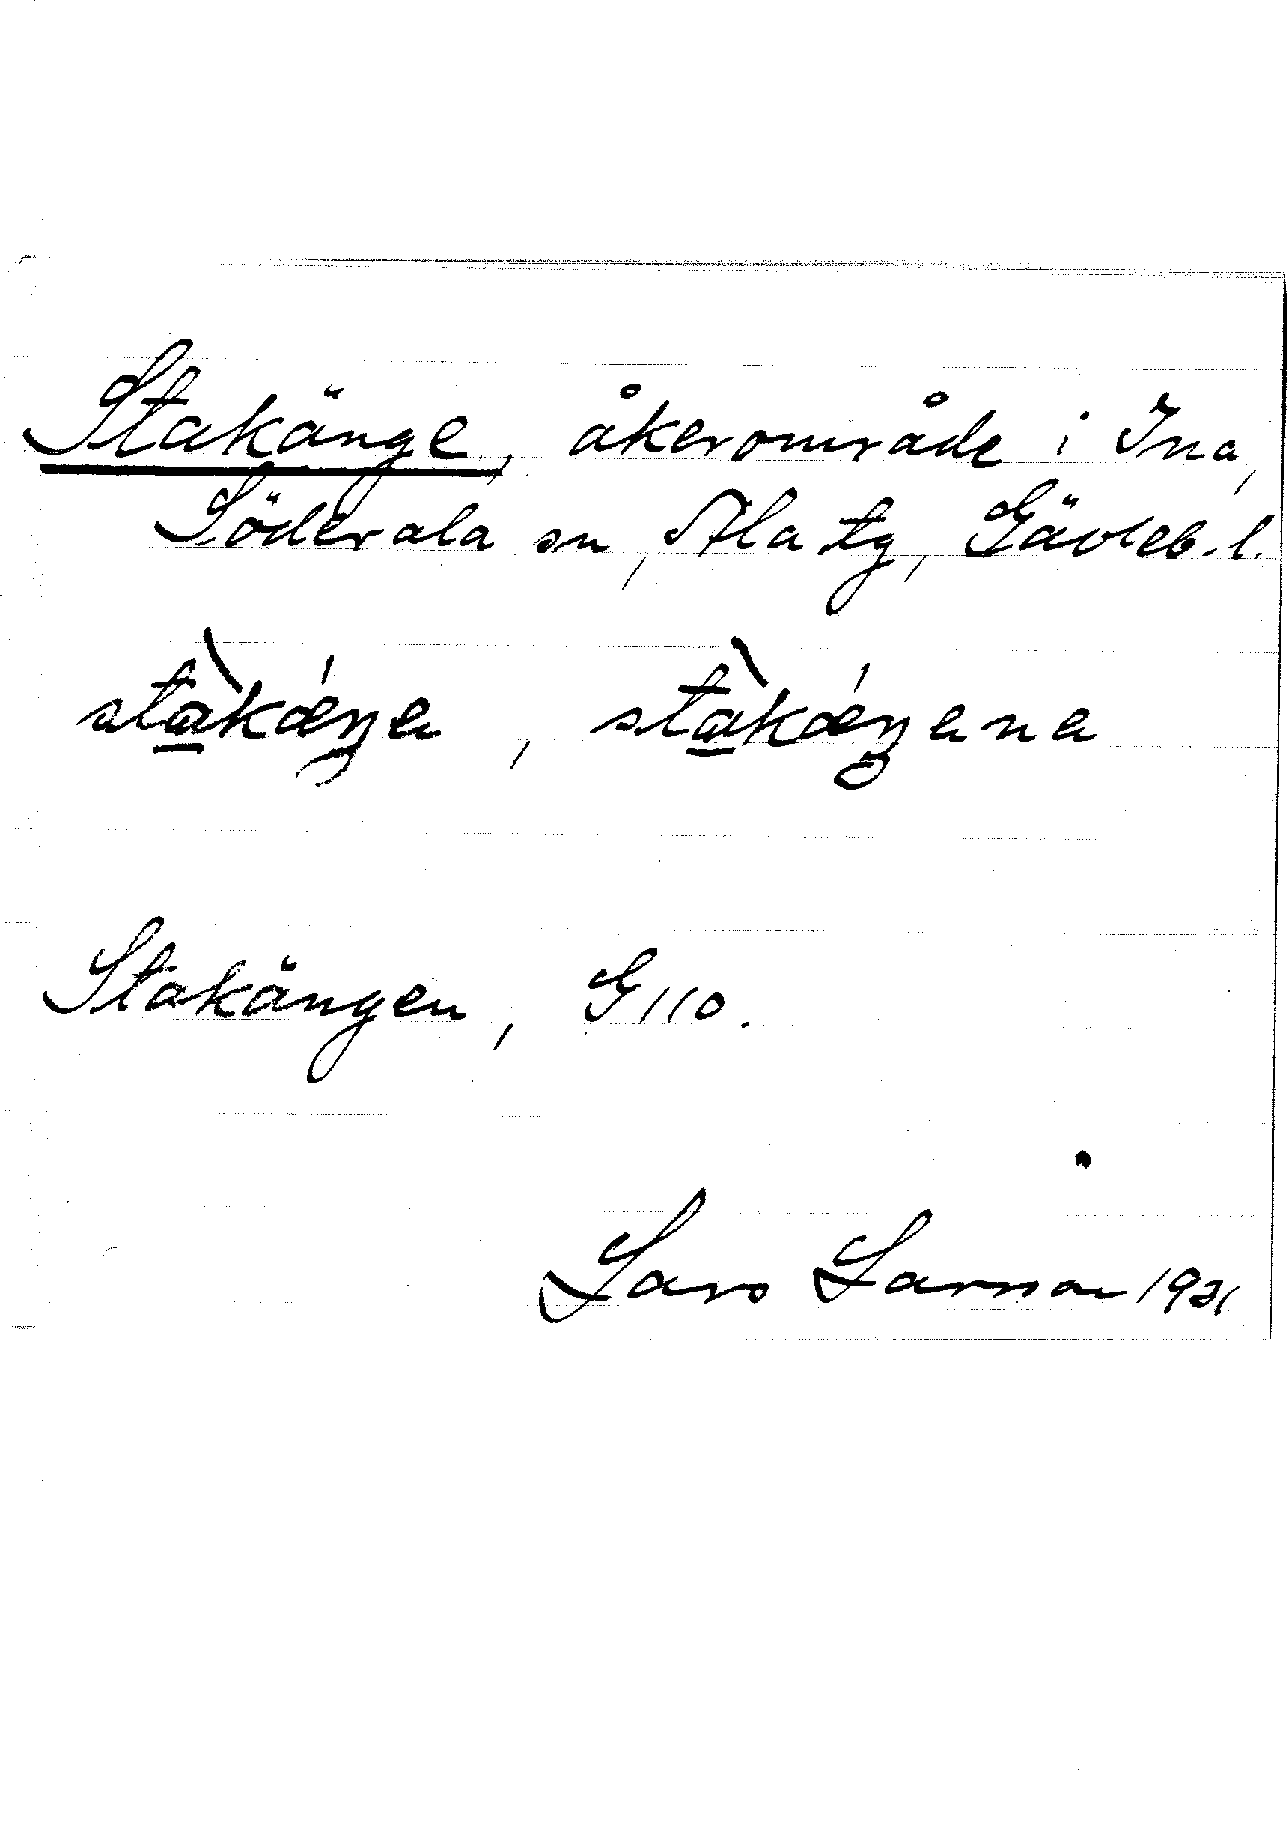 Stakänge, åkerområde i Ina,
Söderala sn, Ala tg, Gävleb. l.
stà̱kǽŋe, stà̱kǽŋena
Stakängen, G 110.
Lars Larsson 1931